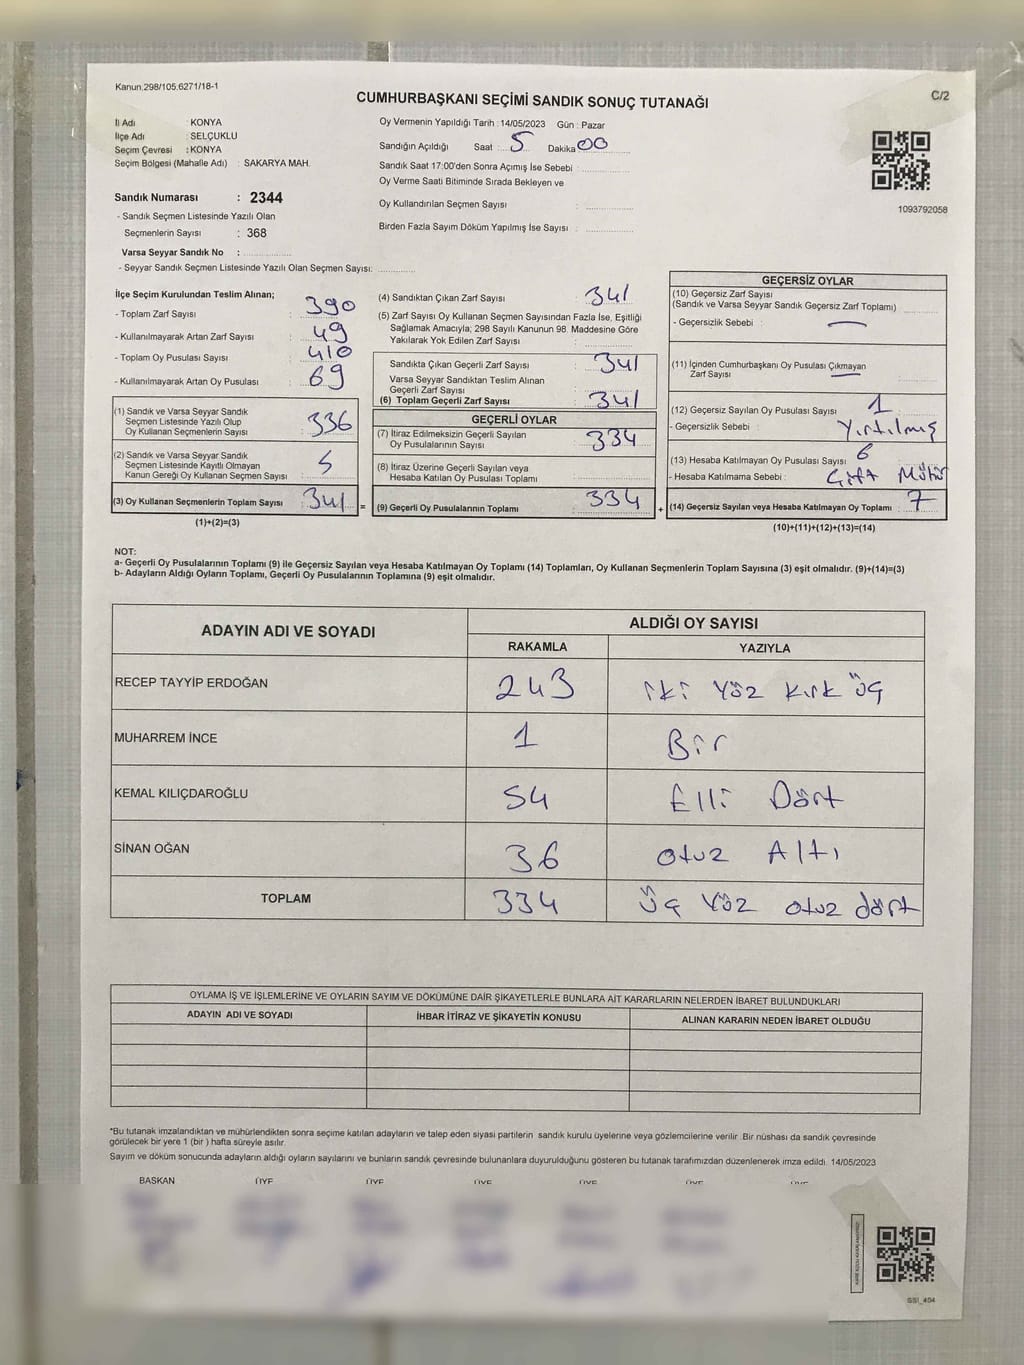 Kanun.298/105.6271/18-1
C/2
CUMHURBAŞKANI SEÇİMİ SANDIK SONUÇ TUTANAĞI
İl Adı : KONYA
İlçe Adı : SELÇUKLU
Seçim Çevresi : KONYA
Seçim Bölgesi (Mahalle Adı) : SAKARYA MAH.
Sandık Numarası : 2344
- Sandık Seçmen Listesinde Yazılı Olan
Seçmenlerin Sayısı : 368
Varsa Seyyar Sandık No :
- Seyyar Sandık Seçmen Listesinde Yazılı Olan Seçmen Sayısı:
Oy Vermenin Yapıldığı Tarih : 14/05/2023 Gün : Pazar
Sandığın Açıldığı Saat : 5 Dakika 00
Sandık Saat 17:00'den Sonra Açımış İse Sebebi :
Oy Verme Saati Bitiminde Sırada Bekleyen ve
Oy Kullandırılan Seçmen Sayısı :
Birden Fazla Sayım Döküm Yapılmış İse Sayısı :
1093792058
İlçe Seçim Kurulundan Teslim Alınan;
- Toplam Zarf Sayısı : 390
- Kullanılmayarak Artan Zarf Sayısı : 49
- Toplam Oy Pusulası Sayısı : 410
- Kullanılmayarak Artan Oy Pusulası : 69
(1) Sandık ve Varsa Seyyar Sandık
Seçmen Listesinde Yazılı Olup
Oy Kullanan Seçmenlerin Sayısı : 336
(2) Sandık ve Varsa Seyyar Sandık
Seçmen Listesinde Kayıtlı Olmayan
Kanun Gereği Oy Kullanan Seçmen Sayısı : 5
(3) Oy Kullanan Seçmenlerin Toplam Sayısı : 341
(1)+(2)=(3)
(4) Sandıktan Çıkan Zarf Sayısı : 341
(5) Zarf Sayısı Oy Kullanan Seçmen Sayısından Fazla İse, Eşitliği
Sağlamak Amacıyla; 298 Sayılı Kanunun 98. Maddesine Göre
Yakılarak Yok Edilen Zarf Sayısı :
Sandıkta Çıkan Geçerli Zarf Sayısı : 341
Varsa Seyyar Sandıktan Teslim Alınan
Geçerli Zarf Sayısı :
(6) Toplam Geçerli Zarf Sayısı : 341
GEÇERLİ OYLAR
(7) İtiraz Edilmeksizin Geçerli Sayılan
Oy Pusulalarının Sayısı : 334
(8) İtiraz Üzerine Geçerli Sayılan veya
Hesaba Katılan Oy Pusulası Toplamı :
= (9) Geçerli Oy Pusulalarının Toplamı : 334
GEÇERSİZ OYLAR
(10) Geçersiz Zarf Sayısı
(Sandık ve Varsa Seyyar Sandık Geçersiz Zarf Toplamı)
- Geçersizlik Sebebi : —
(11) İçinden Cumhurbaşkanı Oy Pusulası Çıkmayan
Zarf Sayısı —
(12) Geçersiz Sayılan Oy Pusulası Sayısı : 1
- Geçersizlik Sebebi : Yırtılmış
(13) Hesaba Katılmayan Oy Pusulası Sayısı : 6
- Hesaba Katılmama Sebebi : Çift Mühür
+ (14) Geçersiz Sayılan veya Hesaba Katılmayan Oy Toplamı : 7
(10)+(11)+(12)+(13)=(14)
NOT:
a- Geçerli Oy Pusulalarının Toplamı (9) ile Geçersiz Sayılan veya Hesaba Katılmayan Oy Toplamı (14) Toplamları, Oy Kullanan Seçmenlerin Toplam Sayısına (3) eşit olmalıdır. (9)+(14)=(3)
b- Adayların Aldığı Oyların Toplamı, Geçerli Oy Pusulalarının Toplamına (9) eşit olmalıdır.
ADAYIN ADI VE SOYADI ALDIĞI OY SAYISI
RAKAMLA YAZIYLA
RECEP TAYYİP ERDOĞAN 243 iki Yüz Kırk üç
MUHARREM İNCE 1 Bir
KEMAL KILIÇDAROĞLU 54 Elli Dört
SİNAN OĞAN 36 otuz Altı
TOPLAM 334 üç Yüz otuz dört
OYLAMA İŞ VE İŞLEMLERİNE VE OYLARIN SAYIM VE DÖKÜMÜNE DAİR ŞİKAYETLERLE BUNLARA AİT KARARLARIN NELERDEN İBARET BULUNDUKLARI
ADAYIN ADI VE SOYADI İHBAR İTİRAZ VE ŞİKAYETİN KONUSU ALINAN KARARIN NEDEN İBARET OLDUĞU
*Bu tutanak imzalandıktan ve mühürlendikten sonra seçime katılan adayların ve talep eden siyasi partilerin sandık kurulu üyelerine veya gözlemcilerine verilir. Bir nüshası da sandık çevresinde
görülecek bir yere 1 (bir ) hafta süreyle asılır.
Sayım ve döküm sonucunda adayların aldığı oyların sayılarını ve bunların sandık çevresinde bulunanlara duyurulduğunu gösteren bu tutanak tarafımızdan düzenlenerek imza edildi. 14/05/2023
BAŞKAN ÜYE ÜYE ÜYE ÜYE ÜYE
GSI_404